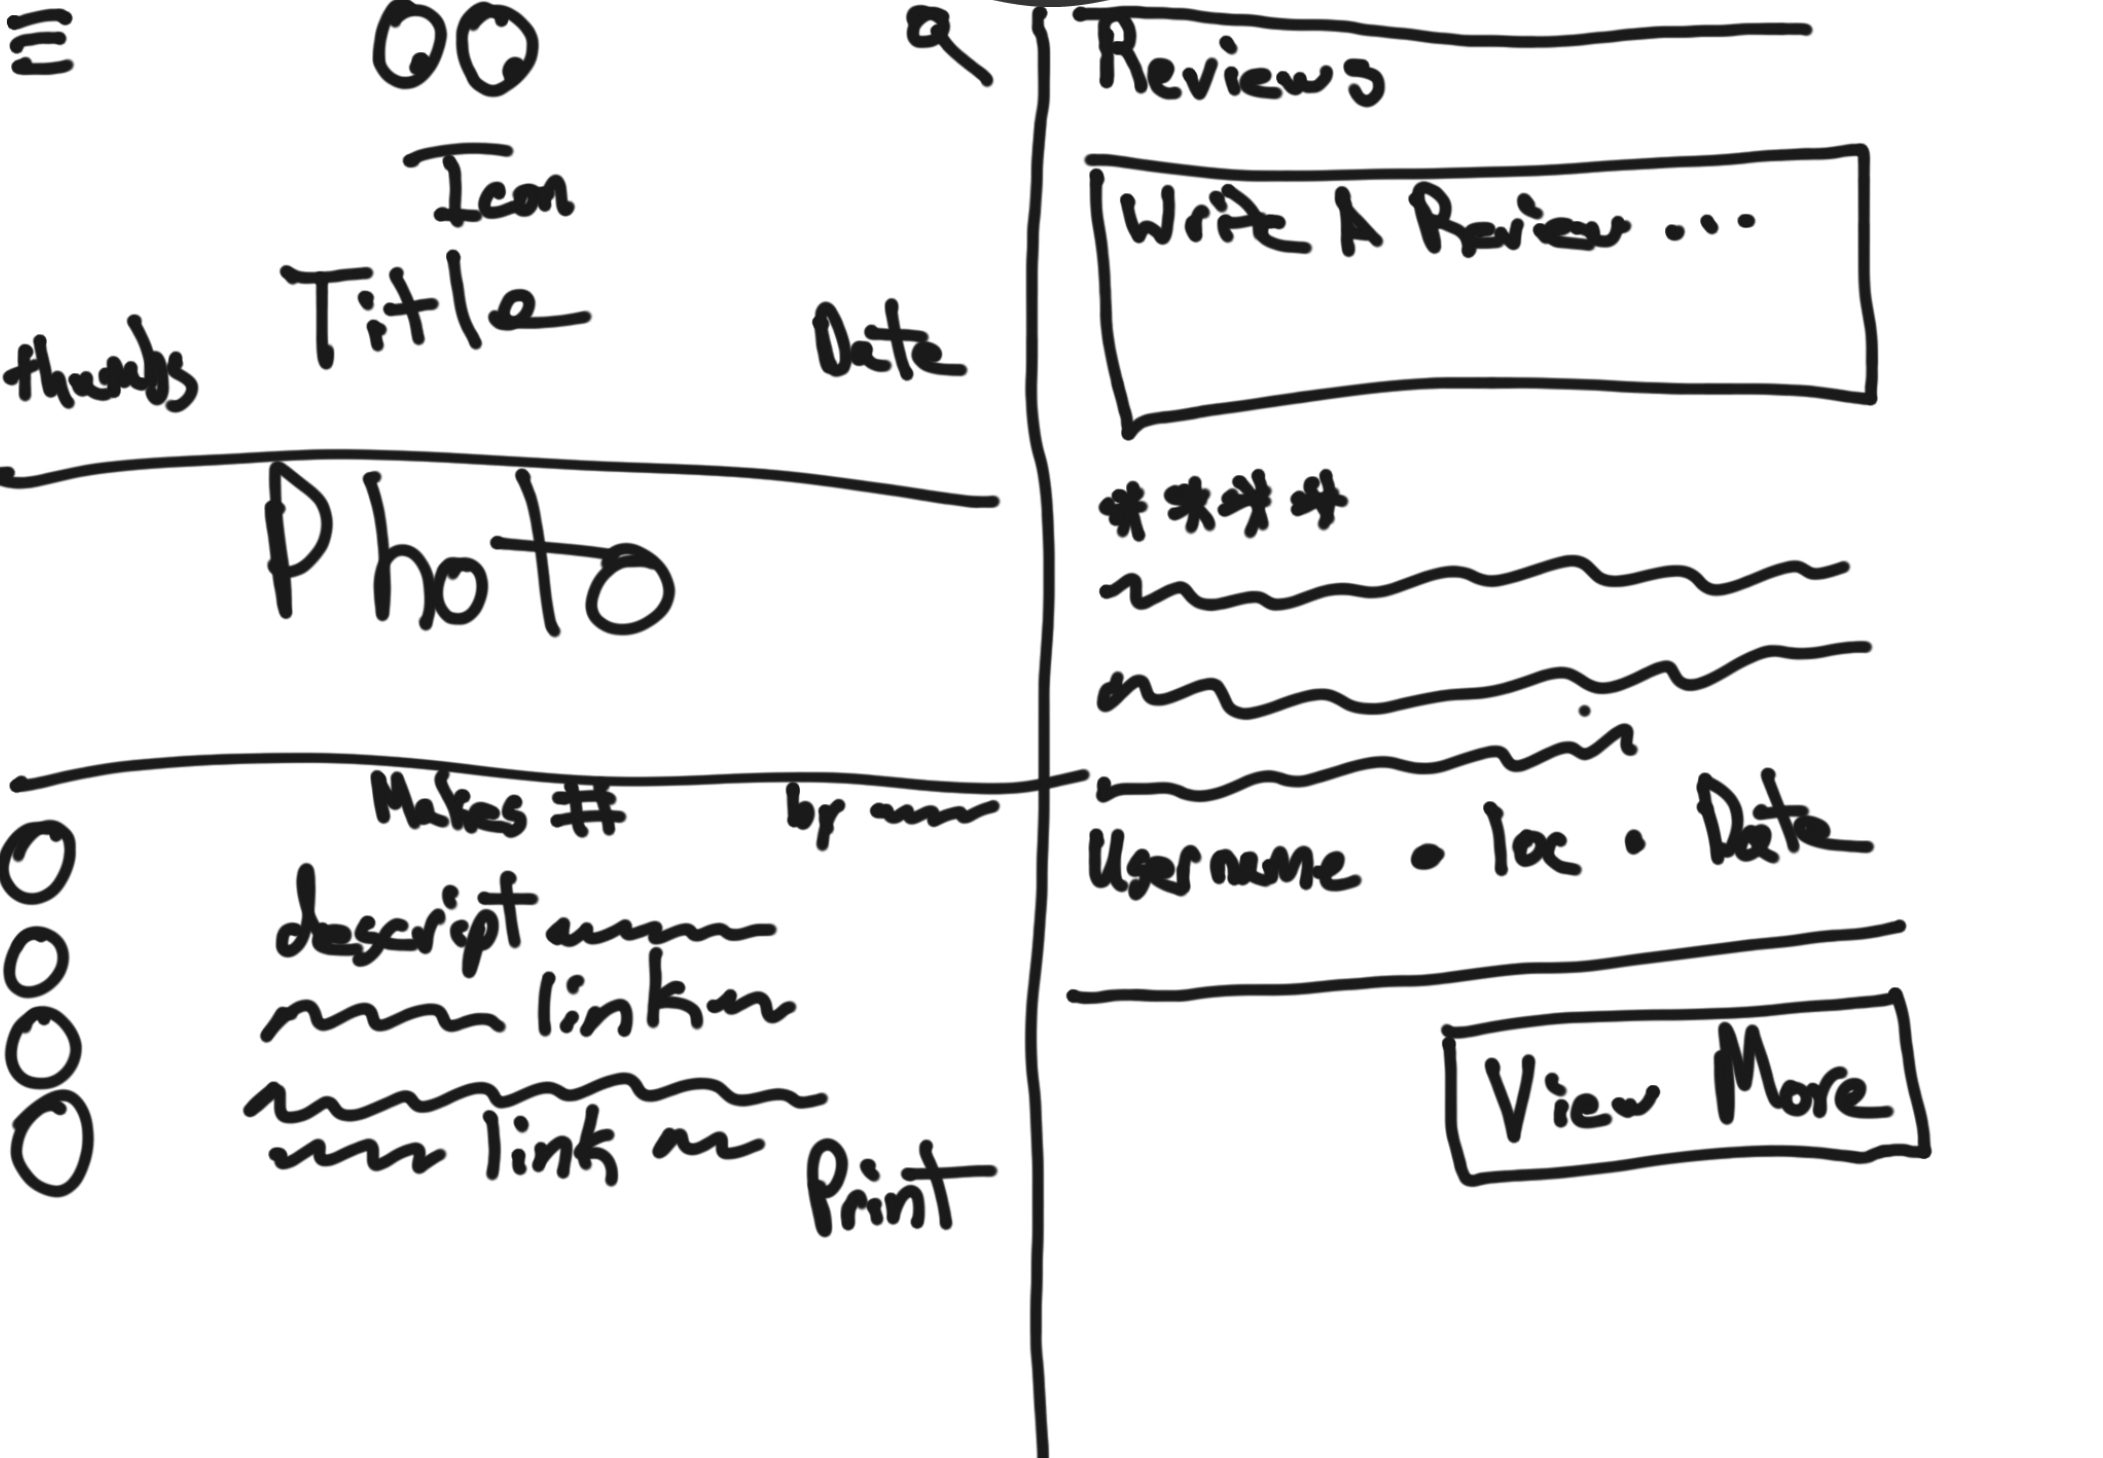 Icon
Title
thumbs
Date
Photo
Makes # by
descript
link
link
Print
Reviews
Write A Review ...
****
Username • loc • Date
View More